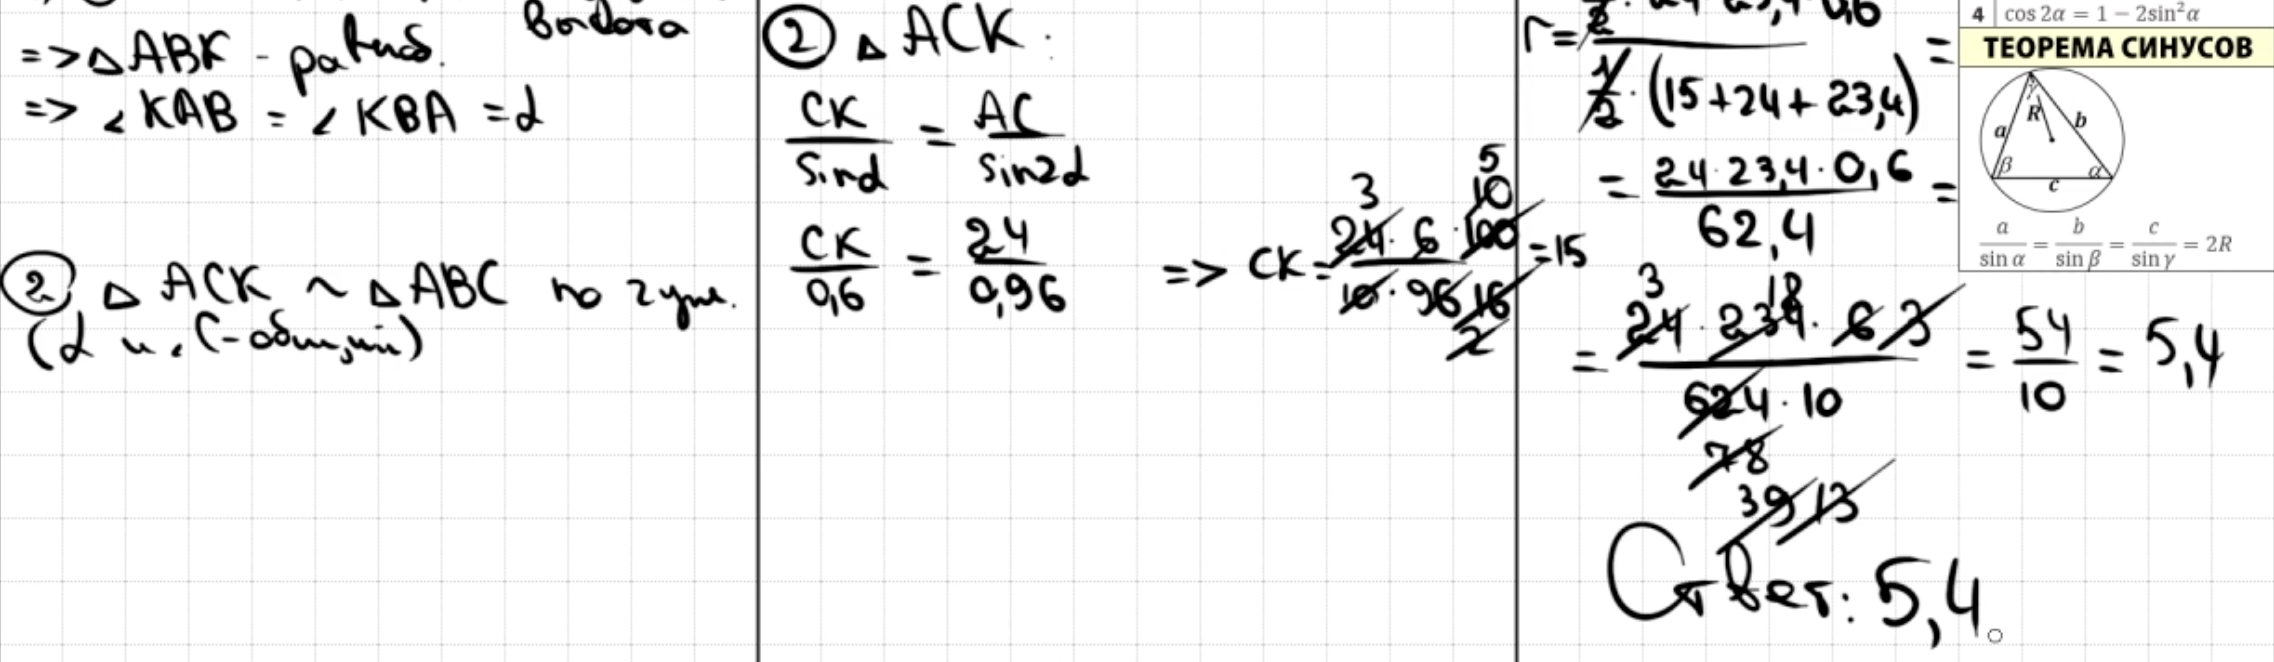 вондога
=> △ ABK - равноб.
=> ∠ KAB = ∠ KBA = α
② △ ACK ~ △ ABC по 2 угл.
(α и ∠C - общий)
② △ ACK:
CK/sinα = AC/sin2α
CK/0,6 = 24/0,96 => CK = 24 · 6 · 100 / 10 · 96 = 15
3 5 10 16 2
r = 1/2 · 24 · 23,4 · 0,6 / 1/2 · (15 + 24 + 23,4) =
= 24 · 23,4 · 0,6 / 62,4 =
= 24 · 234 · 6 / 624 · 10 = 54/10 = 5,4
3 18 3
78
39 13
Ответ: 5,4.
4 cos 2α = 1 − 2sin²α
ТЕОРЕМА СИНУСОВ
γ
R
a b
β α
c
a/sin α = b/sin β = c/sin γ = 2R